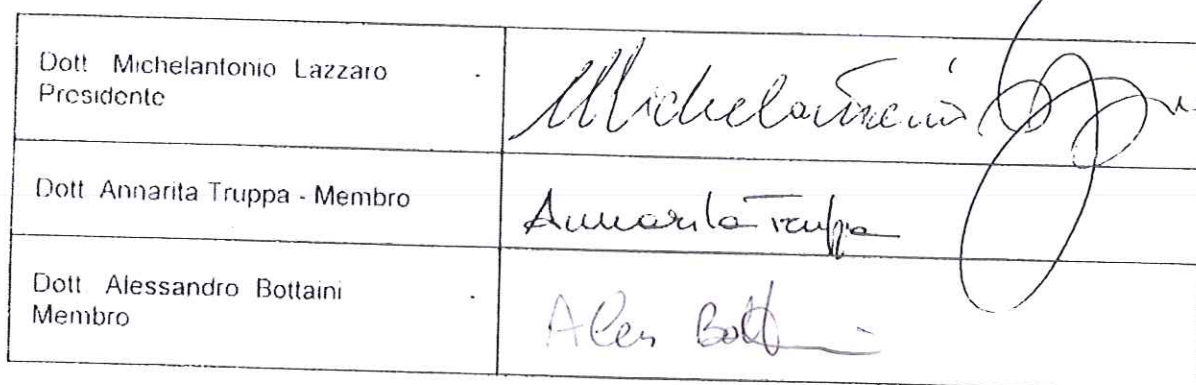 Dott Michelantonio Lazzaro -
Presidente
Michelantonio
Dott Annarita Truppa - Membro
Annarita Truppa
Dott Alessandro Bottaini -
Membro
Ales Bott